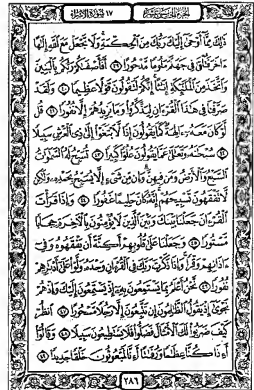 ذَٰلِكَ مِمَّا أَوْحَىٰ إِلَيْكَ رَبُّكَ مِنَ الْحِكْمَةِ وَلَا تَجْعَلْ مَعَ اللَّهِ إِلَٰهًا
ءَاخَرَ فَتُلْقَىٰ فِي جَهَنَّمَ مَلُومًا مَّدْحُورًا ٣٩ أَفَأَصْفَىٰكُمْ رَبُّكُم بِالْبَنِينَ
وَاتَّخَذَ مِنَ الْمَلَٰئِكَةِ إِنَٰثًا إِنَّكُمْ لَتَقُولُونَ قَوْلًا عَظِيمًا ٤٠ وَلَقَدْ
صَرَّفْنَا فِي هَٰذَا الْقُرْءَانِ لِيَذَّكَّرُوا وَمَا يَزِيدُهُمْ إِلَّا نُفُورًا ٤١ قُل
لَّوْ كَانَ مَعَهُ ءَالِهَةٌ كَمَا يَقُولُونَ إِذًا لَّابْتَغَوْا إِلَىٰ ذِي الْعَرْشِ سَبِيلًا
٤٢ سُبْحَٰنَهُ وَتَعَٰلَىٰ عَمَّا يَقُولُونَ عُلُوًّا كَبِيرًا ٤٣ تُسَبِّحُ لَهُ السَّمَٰوَٰتُ
السَّبْعُ وَالْأَرْضُ وَمَن فِيهِنَّ وَإِن مِّن شَيْءٍ إِلَّا يُسَبِّحُ بِحَمْدِهِ وَلَٰكِن
لَّا تَفْقَهُونَ تَسْبِيحَهُمْ إِنَّهُ كَانَ حَلِيمًا غَفُورًا ٤٤ وَإِذَا قَرَأْتَ
الْقُرْءَانَ جَعَلْنَا بَيْنَكَ وَبَيْنَ الَّذِينَ لَا يُؤْمِنُونَ بِالْءَاخِرَةِ حِجَابًا
مَّسْتُورًا ٤٥ وَجَعَلْنَا عَلَىٰ قُلُوبِهِمْ أَكِنَّةً أَن يَفْقَهُوهُ وَفِي
ءَاذَانِهِمْ وَقْرًا وَإِذَا ذَكَرْتَ رَبَّكَ فِي الْقُرْءَانِ وَحْدَهُ وَلَّوْا عَلَىٰ أَدْبَٰرِهِمْ
نُفُورًا ٤٦ نَّحْنُ أَعْلَمُ بِمَا يَسْتَمِعُونَ بِهِ إِذْ يَسْتَمِعُونَ إِلَيْكَ وَإِذْ هُمْ
نَجْوَىٰ إِذْ يَقُولُ الظَّٰلِمُونَ إِن تَتَّبِعُونَ إِلَّا رَجُلًا مَّسْحُورًا ٤٧ انظُرْ
كَيْفَ ضَرَبُوا لَكَ الْأَمْثَالَ فَضَلُّوا فَلَا يَسْتَطِيعُونَ سَبِيلًا ٤٨ وَقَالُوا
أَءِذَا كُنَّا عِظَٰمًا وَرُفَٰتًا أَءِنَّا لَمَبْعُوثُونَ خَلْقًا جَدِيدًا ٤٩
٢٨٦